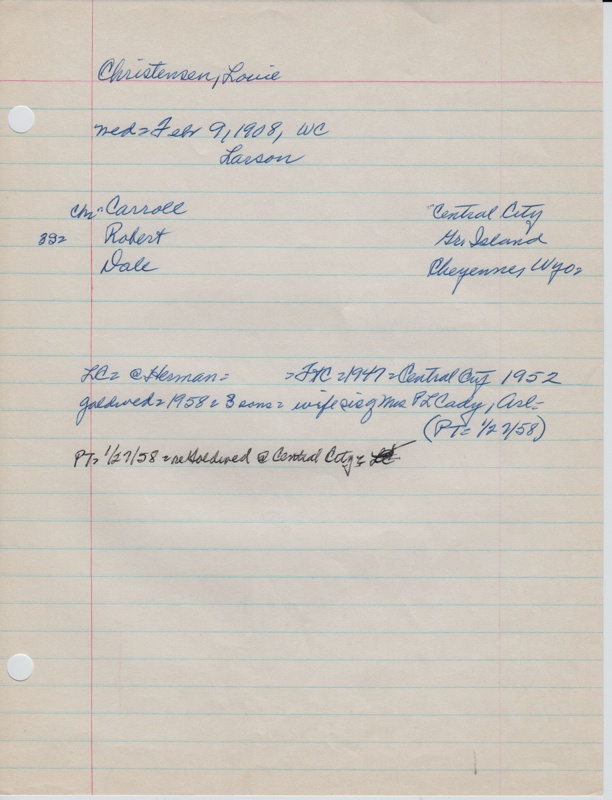 Christensen, Louie
med = Febr 9, 1908, WC
Larson
Chr Carroll Central City
392 Robert Gr. Island
Dale Cheyenne, Wyo =
LC = @ Herman = = FrC = 1947 = Central City 1952
goldwed = 1958 = 3 sons = wife sis of Mrs PL Cady, Arl =
(PT = 1/27/58)
PT = 1/27/58 = re Goldwed @ Central City =